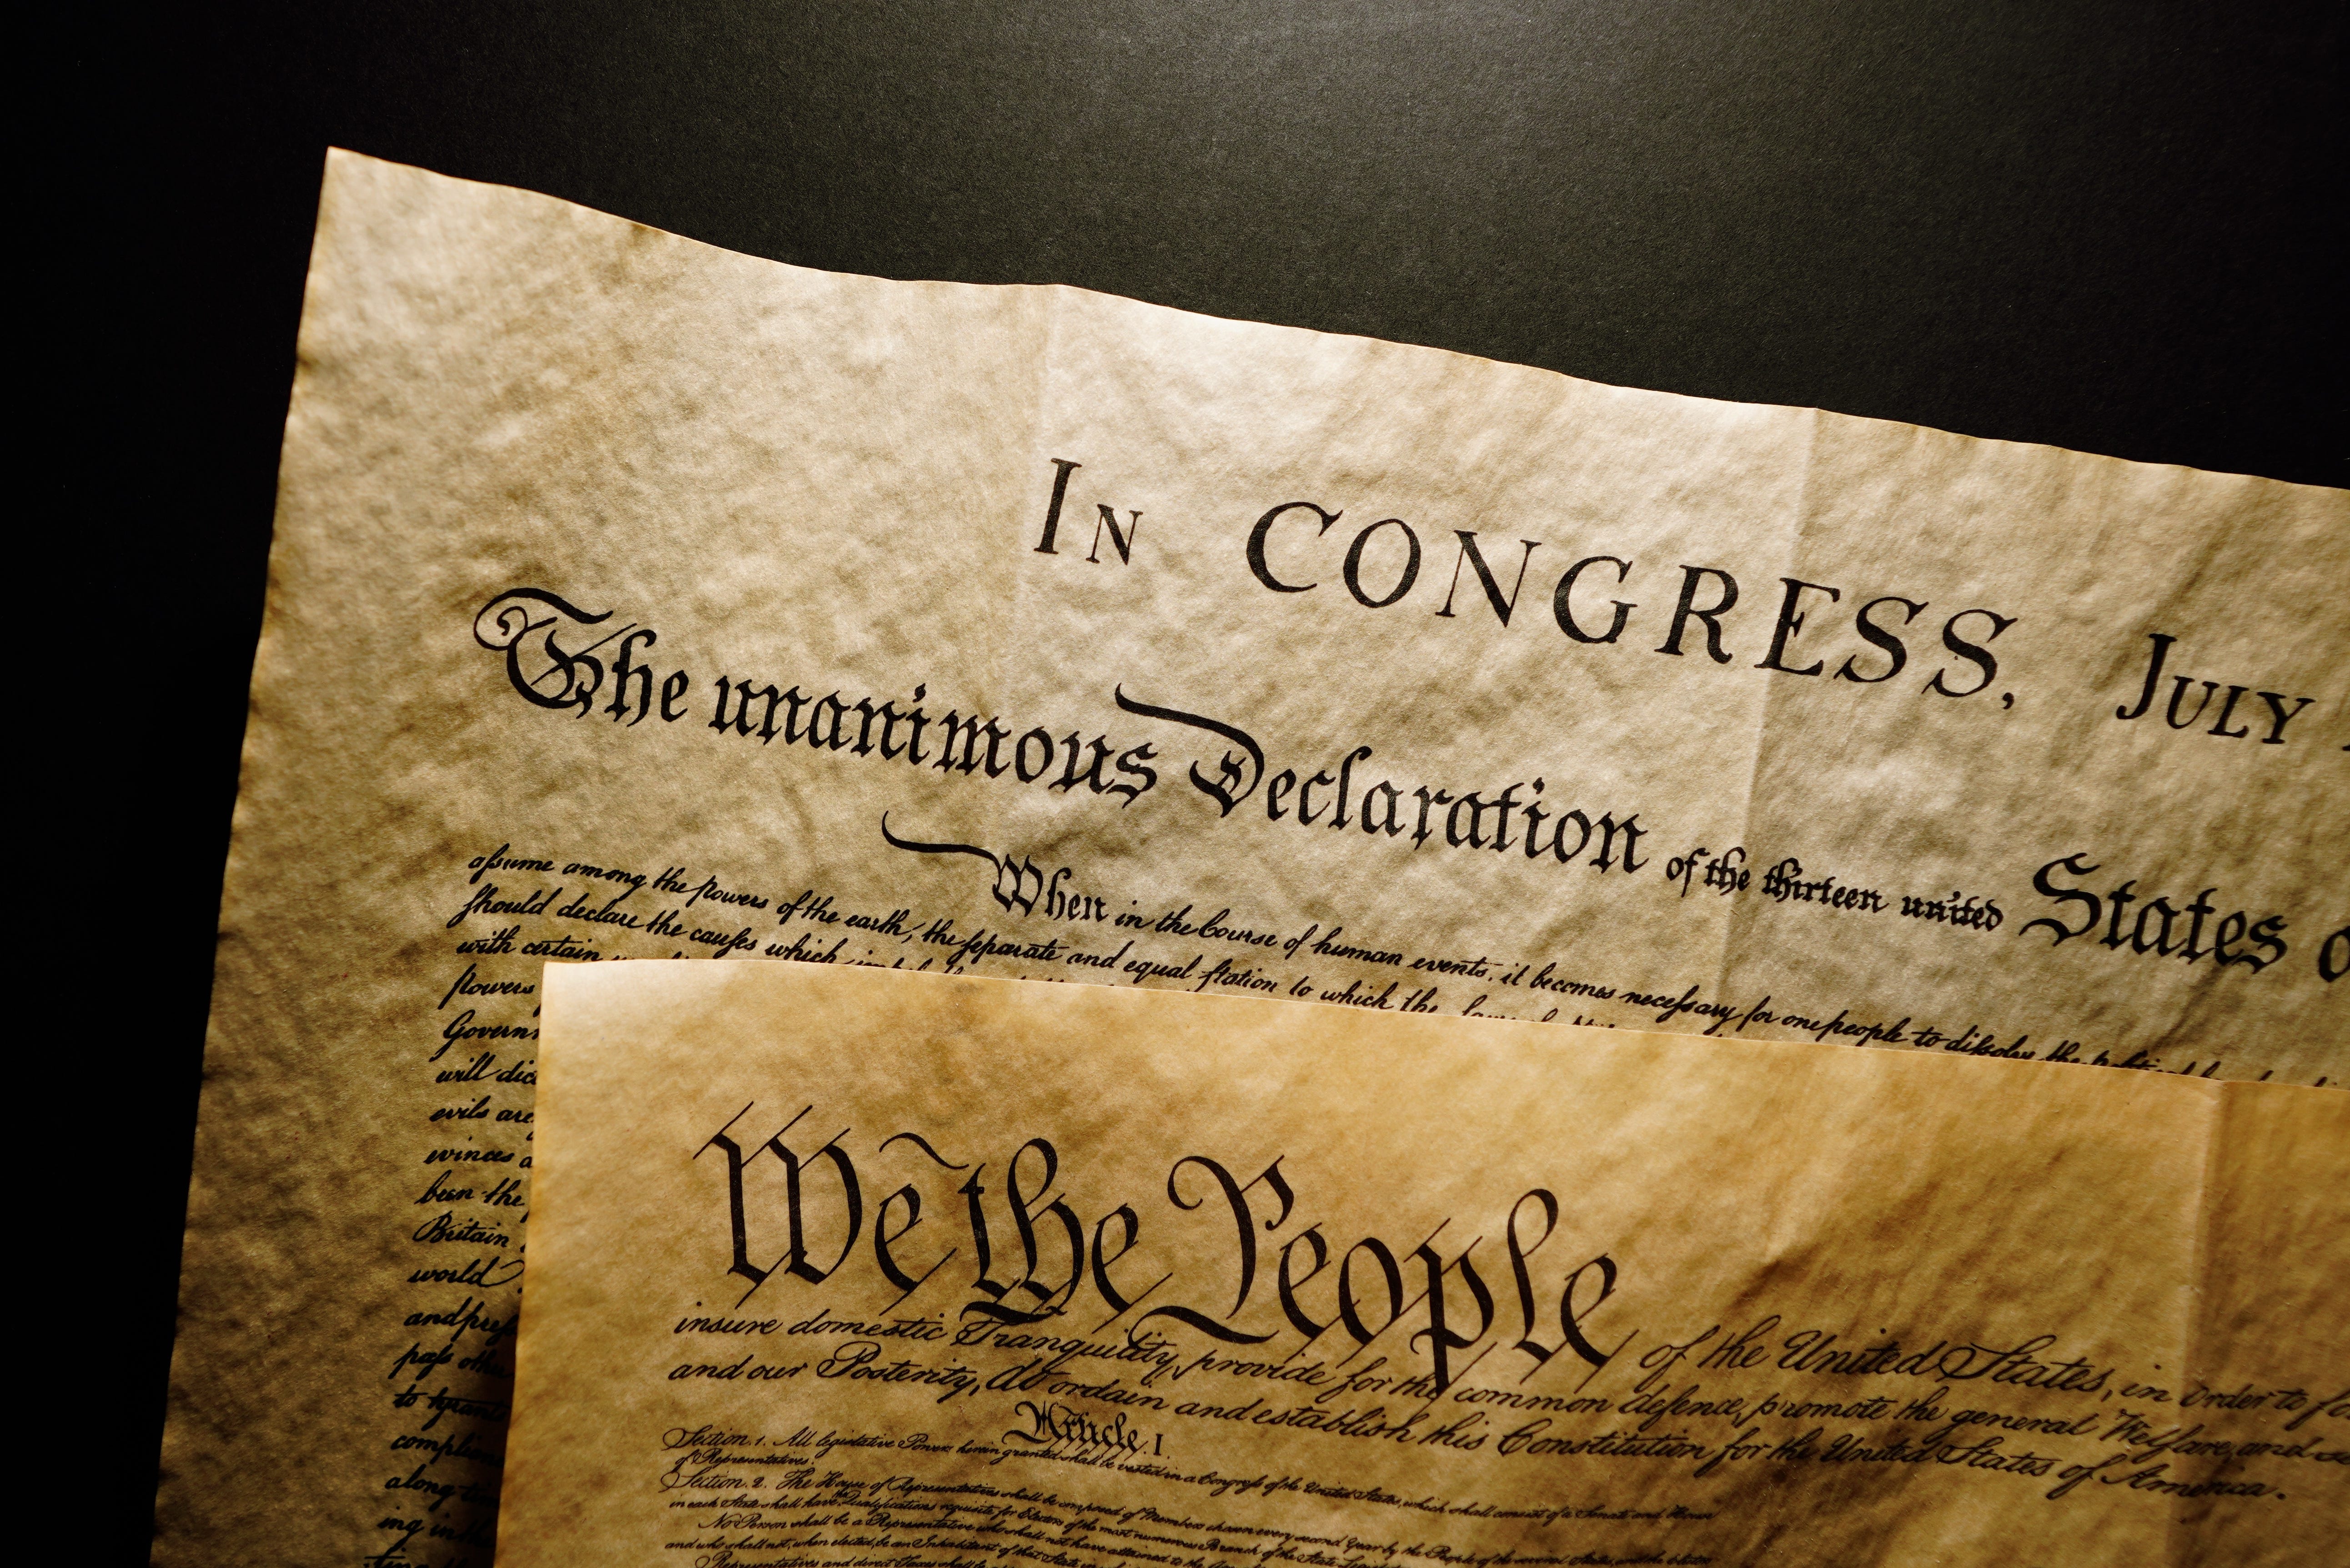 In CONGRESS, July
The unanimous Declaration of the thirteen united States
When in the Course of human events, it becomes necessary for one people to dissolve the
assume among the powers of the earth, the separate and equal station to which the
should declare the causes which
with certain
powers
Govern
will dic
evils are
evinces a
been the
Britain
world
and pres
pass othe
to tyrann
complian
along
ing in
We the People of the United States, in Order to fo
insure domestic Tranquility, provide for the common defence, promote the general Welfare, and
and our Posterity, do ordain and establish this Constitution for the United States of America.
Article. I.
Section. 1. All legislative Powers herein granted shall be vested in a Congress of the United States, which shall consist of a Senate and House
of Representatives.
Section. 2. The House of Representatives shall be composed of Members chosen every second Year by the People of the several States, and the Electors
in each State shall have the Qualifications requisite for Electors of the most numerous Branch of the State Legislature.
No Person shall be a Representative who shall not have attained to the
and who shall not, when elected, be an Inhabitant of that State in
Representatives and direct Taxes shall be